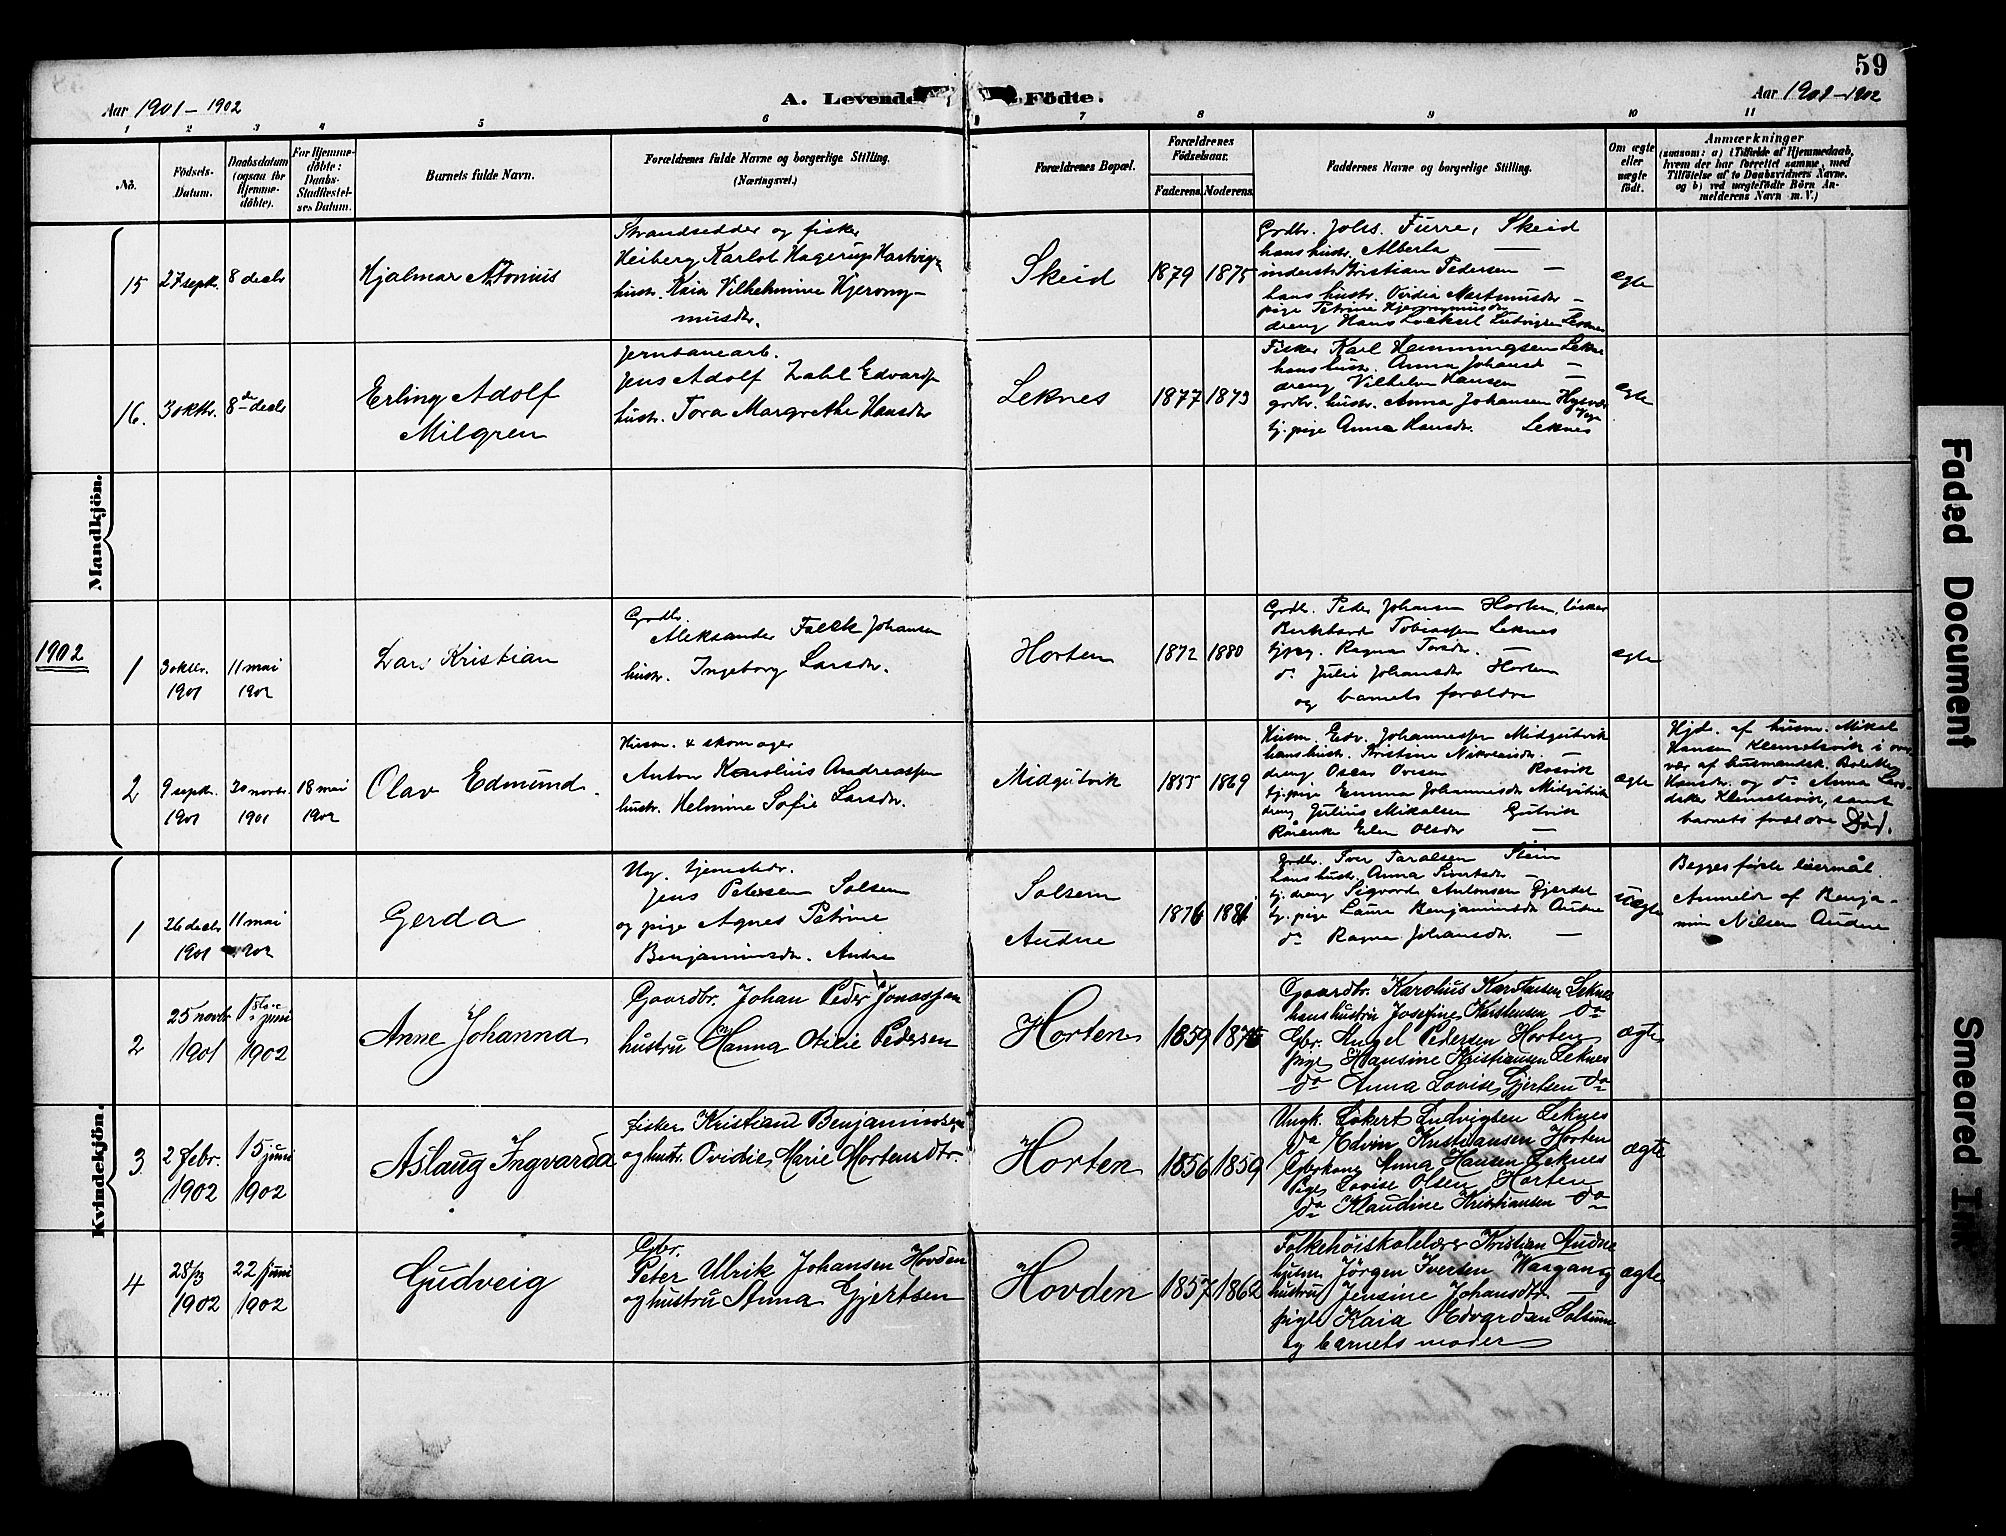 59
Aar 1901-1902
A. Levende Födte.
Aar 1901-1902
1 2 3 4 5 6 7 8 9 10 11
No.
Födsels-Datum.
Daabsdatum (ogsaa for Hjemme-döbte).
For Hjemme-döbte: Daabs-Stadfæstel-ses Datum.
Barnets fulde Navn.
Forældrenes fulde Navne og borgerlige Stilling.
(Næringsvei.)
Forældrenes Bopæl.
Forældrenes Födselsaar.
Faderens. Moderens.
Faddernes Navne og borgerlige Stilling.
Om ægte eller uægte födt.
Anmærkninger
(saasom: a) i Tilfælde af Hjemmedaab,
hvem der har forrettet samme, med
Tilföielse af to Daabsvidners Navne.
og b) ved uægtefödte Börn An-
melderens Navn m. V.)
Mandkjön.
15 27 sept. 8 decb
Hjalmar Antonius
Strandsidder og fisker
Heiberg Karlot Hagerup Hartvig-
hustr. Kaia Vilhelmine Hjerony-
musdr.
Skeid 1879 1875
Grdbr. Johs. Furre, Skeid
hans hustr. Alberta —
inderst Kristian Pedersen —
hans hustr. Ovidia Martinusdr —
pige Petrine Hjeronymusdr —
dreng Hans Lockert Ludvigsen Leknes
ægte
16. 3 oktbr. 8de decb
Erling Adolf
Milgren
Jernbanearb.
Jens Adolf Zahl Edvards
hustr. Tora Margrethe Hansdr
Leknes 1877 1873
Fisker Karl Hemmingsen Leknes
hans hustr. Anna Johansd —
dreng Vilhelm Hansen
grdbr. hustr. Anna Johansen
tj. pige Anna Hansdr. Leknes
ægte
1902
1 3 oktbr. 1901 11 mai 1902
Lars Kristian
Grdbr.
Aleksander Falck Johansen
hustr. Ingeborg Larsdr.
Horten 1872 1880
Grdbr. Peder Johansen Horten, fisker
Bernhard Tobiassen Leknes
tjpg. Ragna Torsdr. —
do Julie Johansdr Horten
og barnets forældre
ægte
2 9 septb. 1901 30 novbr. 1901 18 mai 1902
Olav Edmund.
Husm. & skomager
Anton Karolius Andreassen
hustr. Helmine Sofie Larsdr.
Midgutvik 1855 1869
Husm. Edv. Johannessen Midgutvik
hans hustr. Kristine Nikolaisdr —
dreng Oscar Ovesen Rosvik
tj. pige Emma Johannesdr Midgutvik
dreng Julius Mikalsen Gutvik
Kårenke Elen Olsdr —
ægte
Hjd. af husm. Mikal
Hansen Klemetsvik i over-
vær af husmandsk. Bolette
Hansdr. og do Anna Lar-
sdtr Klemetsvik, samt
barnets forældre Död.
Kvindekjön.
1 26 decb 1901 11 mai 1902
Gerda
Ug. tjenestedr.
Jens Petersen Solsem
og pige Agnes Petrine
Benjaminsdr. Audne
Solsem
Audne
1876 1881
Grdbr. Iver Taralsen Stein
hans hustr. Anna Sivertsdr —
tj. dreng Sigvard Antonsen Gjerdet
tj. pige Laura Benjaminsdr Audne
do Ragna Johansdr. —
uægte
Begges förste leiermål.
Anmeldr af Benja-
min Nilsen Audne
2 25 novbr 1901 1ste juni 1902
Anne Johanna
Gaardbr. Johan Peder Jonassen
hustru Hanna Otilie Pedersen
Horten 1859 1875
Gaardbr. Karolius Karstensen Leknes
hans hustru Josefine Karstensen do
Gbr. Angel Pedersen Horten
Pige Hansine Kristiansen Leknes
do Anna Lovise Gjertsen do
ægte
3 2 febr. 1902 15 juni 1902
Aslaug Ingvarda
fisker Kristian Benjaminsen
og hustr. Ovidie Marie Mortensdtr.
Horten 1856 1859
Ungk. Lokert Ludvigsen Leknes
do Edvin Kristiansen Horten
Gbrkone Anna Hansen Leknes
Pige Lovise Olsen Horten
do Klaudine Kristiansen do
ægte
4 28/3 1902 22 juni 1902
Gudveig
Gbr.
Peter Ulrik Johansen Hovden
og hustru Anna Gjertsen
Hovden 1857 1862
Folkehöiskolelærer Kristian Audne
husm. Jörgen Iversen Kasgang
hustru Jensine Johansdtr —
pige Kaia Edvardsen Solsem
og barnets moder
ægte
Faded Document
Smeared Ink